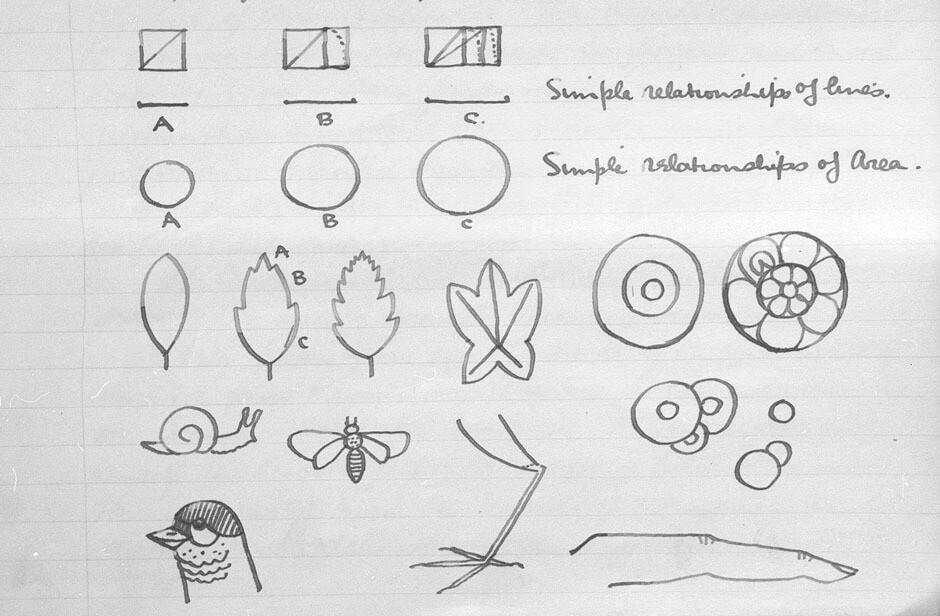 A B C.
Simple relationships of lines.
A B C
Simple relationships of Area.
A
B
C